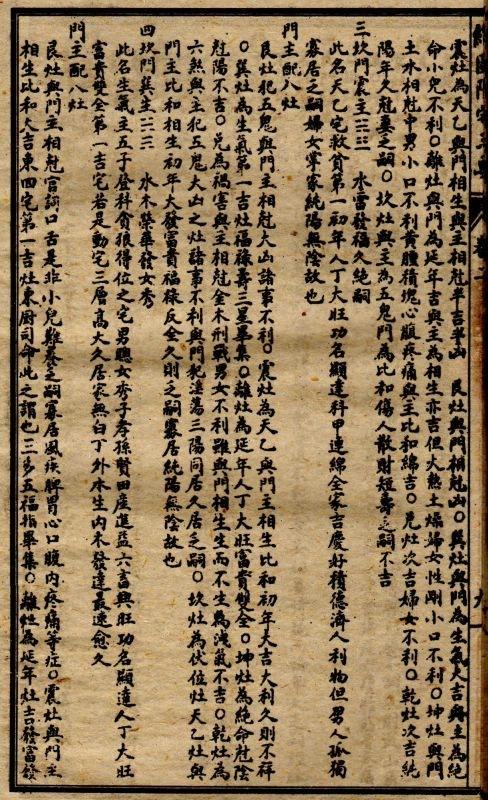 震灶為天乙與門相生與主相尅半吉半凶 艮灶與門相尅凶○巽灶與門為生氣大吉與主為絕
命小兒不利○離灶與門為延年吉與主為相生亦吉但火熱土燥婦女性剛小口不利○坤灶與門
土水相尅中男小口不利黃腫積塊心腹疼痛與主比和綿吉○兌灶次吉婦女不利○乾灶次吉純
陽年久尅妻乏嗣○坎灶與主為五鬼門為比和傷人散財短壽乏嗣不吉
三坎門震主 水雷發福久絕嗣
此名天乙宅救貧第一初年人丁大旺功名顯達科甲連綿全家吉慶好積德濟人利物但男人孤獨
寡居乏嗣婦女掌家純陽無陰故也
門主配八灶
艮灶犯五鬼與門主相尅大凶諸事不利○震灶為天乙與門主相生比和初年大吉大利久則不祥
○巽灶為生氣第一吉灶福祿壽三星畢集○離灶為延年人丁大旺富貴雙全○坤灶為絕命尅陰
尅陽不吉○兌為禍害與主相尅金木刑戰男女不利雖與門相生生而不生為洩氣不吉○乾灶為
六煞與主犯五鬼大凶之灶諸事不利與門犯淫蕩三陽同居久居乏嗣○坎灶為伏位灶天乙灶與
門主比和相生初年大發富貴福祿反全久則乏嗣寡居純陽無陰故也
四坎門巽主 水木榮華發女秀
此名生氣主五子登科貪狼得位之宅男聰女秀子孝孫賢田產進益六畜興旺功名顯達人丁大旺
富貴雙全第一吉宅若是動宅三層高大久居家無白丁外本生內木發達最速愈久
門主配八灶
艮灶與門主相尅官訟口舌是非小兒難養乏嗣寡居風疾脾胃心口腹內疼痛等症○震灶與門主
相生比和大吉東四宅第一吉灶東廚司命此之謂也三多五福指畢集○離灶為延年灶吉發富發